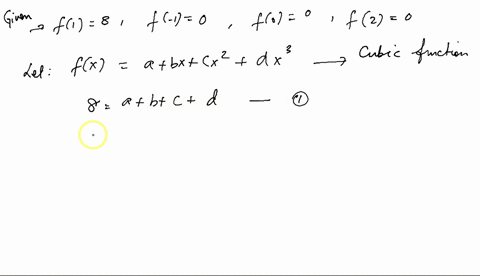 Given → f(1) = 8 , f(-1) = 0 , f(0) = 0 , f(2) = 0
Let: f(x) = a + bx + cx² + dx³ → Cubic function
8 = a + b + c + d — ①